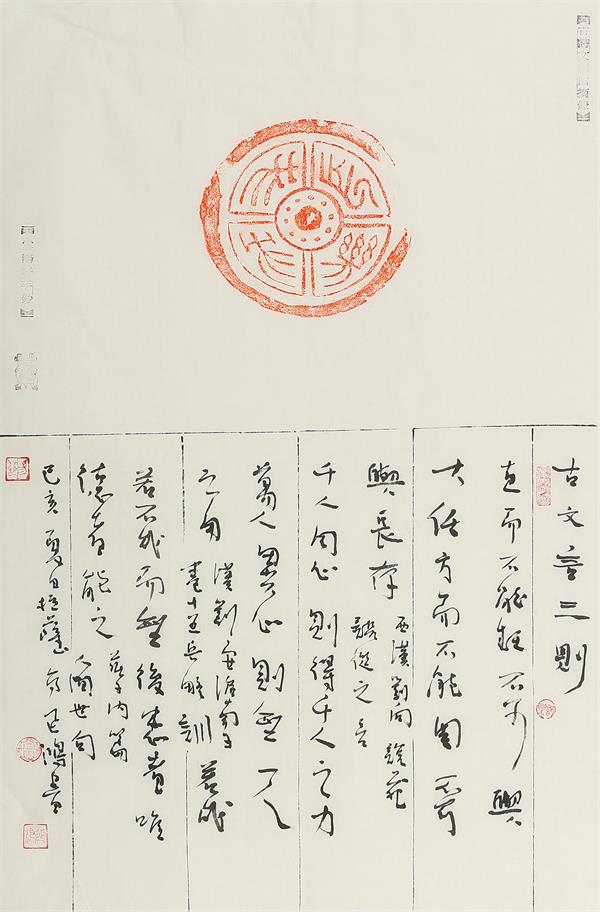 古文言三則
直而不能枉不可與
大任方而不能圓不可
與長存 西漢劉向說苑
談從之言
千人同心則得千人之力
萬人異心則無一人
之用 漢劉安淮南子
卷十五兵略訓 若成
若不成而無後患者唯
德者能之 莊子內篇
人間世句
己亥夏日拉薩 鴻書